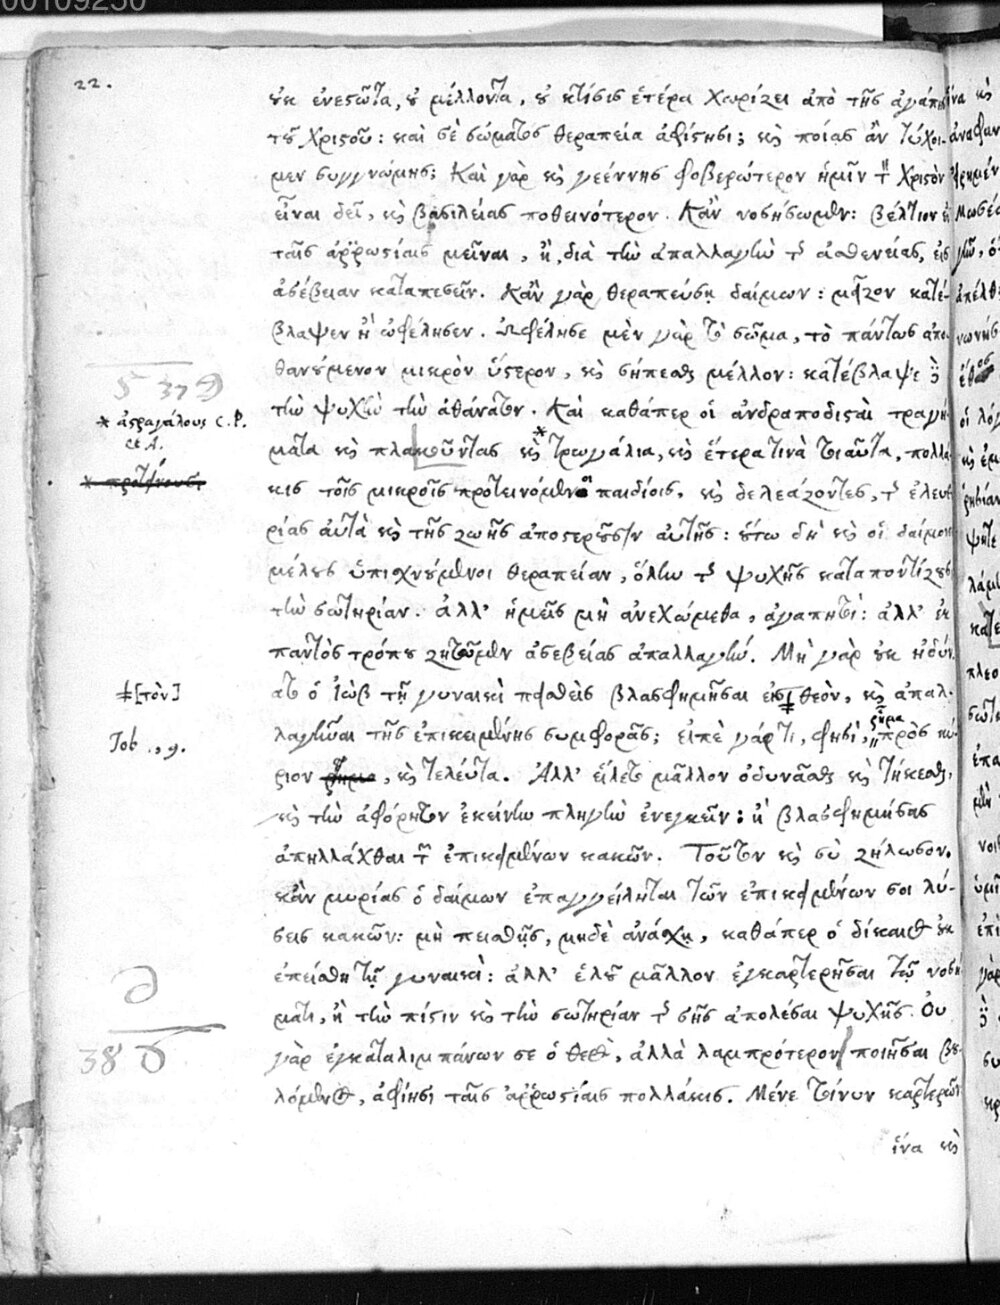 00109250
22.
οὐκ ἐνεστῶτα, οὐ μέλλοντα, οὐ κτίσις ἑτέρα χωρίζει ἀπὸ τῆς ἀγάπης
τοῦ Χριστοῦ: καὶ σὲ σώματος θεραπεία ἀφίστησι; καὶ ποίας ἂν τύχοι-
μεν συγγνώμης; Καὶ γὰρ καὶ γεέννης φοβερώτερον ἡμῖν τὸν Χριστὸν
εἶναι δεῖ, καὶ βασιλείας ποθεινότερον. Κἂν νοσήσωμεν: βέλτιον ἐν
ταῖς ἀῤῥωστίαις μεῖναι, ἢ, διὰ τὴν ἀπαλλαγὴν τῆς ἀσθενείας, εἰς
ἀσέβειαν καταπεσεῖν. Κἂν γὰρ θεραπεύσῃ δαίμων: μεῖζον κατέ-
βλαψεν ἢ ὠφέλησεν. Ὠφέλησε μὲν γὰρ τὸ σῶμα, τὸ πάντως ἀπο-
θανούμενον μικρὸν ὕστερον, καὶ σήπεσθαι μέλλον: κατέβλαψε δὲ
5 379
τὴν ψυχὴν τὴν ἀθάνατον. Καὶ καθάπερ οἱ ἀνδραποδισταὶ τραγή-
* ἀστραγάλους C. P.
et A.
ματα καὶ πλακοῦντας καὶ * τρωγάλια, καὶ ἕτερα τινὰ τοιαῦτα, πολλά-
* προτείνουσι
κις τοῖς μικροῖς προτεινόμενοι παιδίοις, καὶ δελεάζοντες, τῆς ἐλευθε-
ρίας αὐτὰ καὶ τῆς ζωῆς ἀποστεροῦσιν αὐτῆς: οὕτω δὴ καὶ οἱ δαίμονες
μέλους ὑπισχνούμενοι θεραπείαν, ὅλην τῆς ψυχῆς καταποντίζουσι
τὴν σωτηρίαν. ἀλλ' ἡμεῖς μὴ ἀνεχώμεθα, ἀγαπητοί: ἀλλ' ἐκ
παντὸς τρόπου ζητῶμεν ἀσεβείας ἀπαλλαγήν. Μὴ γὰρ οὐκ ἠδύν-
ǂ [τὸν]
ατο ὁ Ἰὼβ τῇ γυναικὶ πεισθεὶς βλασφημῆσαι εἰς ǂ θεὸν, καὶ ἀπαλ-
Job ., 9.
λαγῆναι τῆς ἐπικειμένης συμφορᾶς; εἰπὲ γάρ τι, φησὶ, ῥῆμα πρὸς κύ-
ριον ῥῆμα, καὶ τελεύτα. Ἀλλ' εἵλετο μᾶλλον ὀδυνᾶσθαι καὶ τήκεσθαι,
καὶ τὴν ἀφόρητον ἐκείνην πληγὴν ἐνεγκεῖν: ἢ βλασφημήσας
ἀπηλλάχθαι τῶν ἐπικειμένων κακῶν. Τοῦτον καὶ σὺ ζήλωσον.
κἂν μυρίας ὁ δαίμων ἐπαγγείληται τῶν ἐπικειμένων σοι λύ-
σεις κακῶν: μὴ πεισθῇς, μηδὲ ἀνάσχῃ, καθάπερ ὁ δίκαιος οὐκ
ἐπείσθη τῇ γυναικί: ἀλλ' ἑλοῦ μᾶλλον ἐγκαρτερῆσαι τῷ νοσή-
ματι, ἢ τὴν πίστιν καὶ τὴν σωτηρίαν τῆς σῆς ἀπολέσαι ψυχῆς. Οὐ
38
γὰρ ἐγκαταλιμπάνων σε ὁ θεὸς, ἀλλὰ λαμπρότερον ποιῆσαι βου-
λόμενος, ἀφίησι ταῖς ἀῤῥωστίαις πολλάκις. Μένε τοίνυν καρτερῶν
ἵνα καὶ